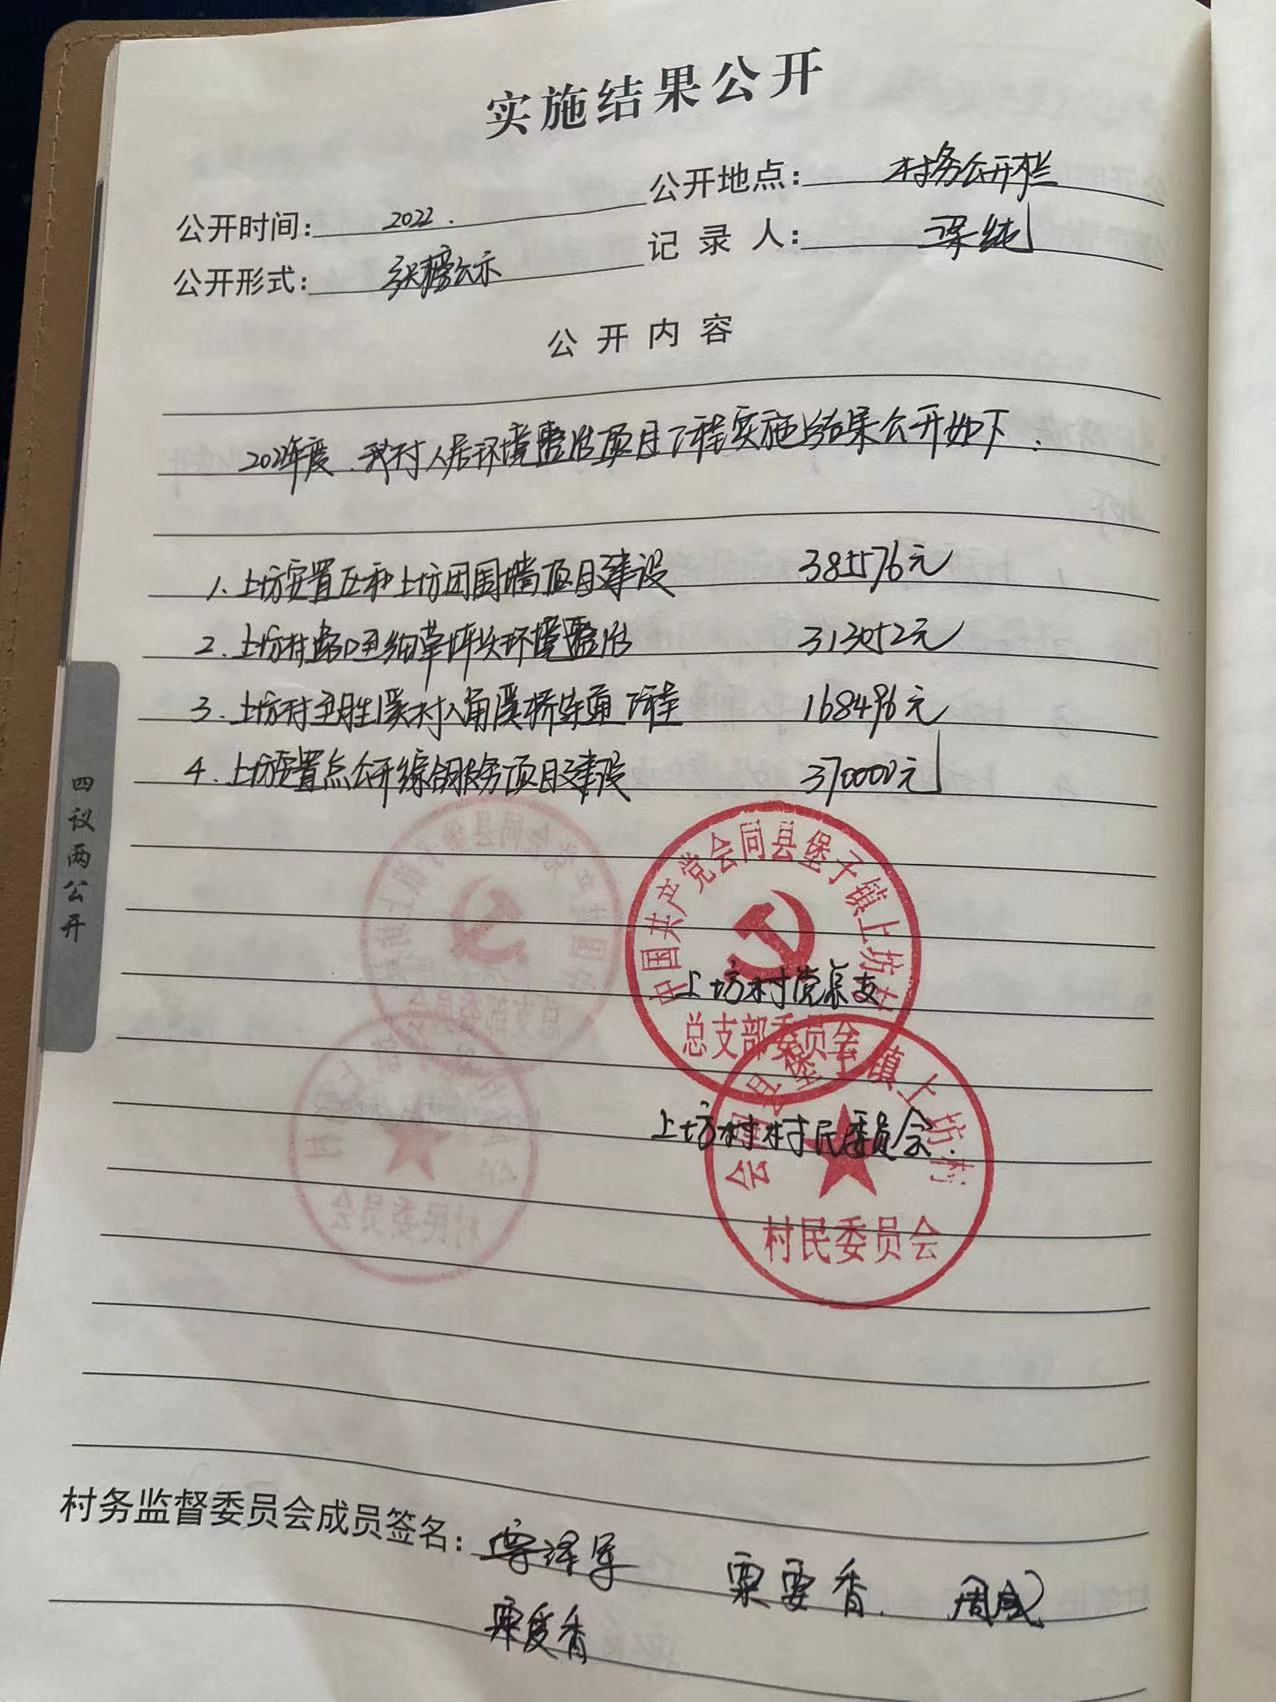 实施结果公开
公开地点: 村务公开栏
公开时间: 2022.
记录人: 梁纯
公开形式: 张榜公示
公开内容
2021年度.我村人居环境整治项目工程实施结果公开如下.
1.上坊安置区和上坊团围墙项目建设 385576元
2.上坊村路口至 环境整治 313052元
3.上坊村至 溪村八角溪桥 工程 168496元
4.上坊安置点公开综合服务项目建设 370000元
四议两公开
中国共产党会同县堡子镇上坊村
上坊村党总支
总支部委员会
会同县堡子镇上坊村
上坊村村民委员会.
村民委员会
村务监督委员会成员签名: 粟要香. 周成